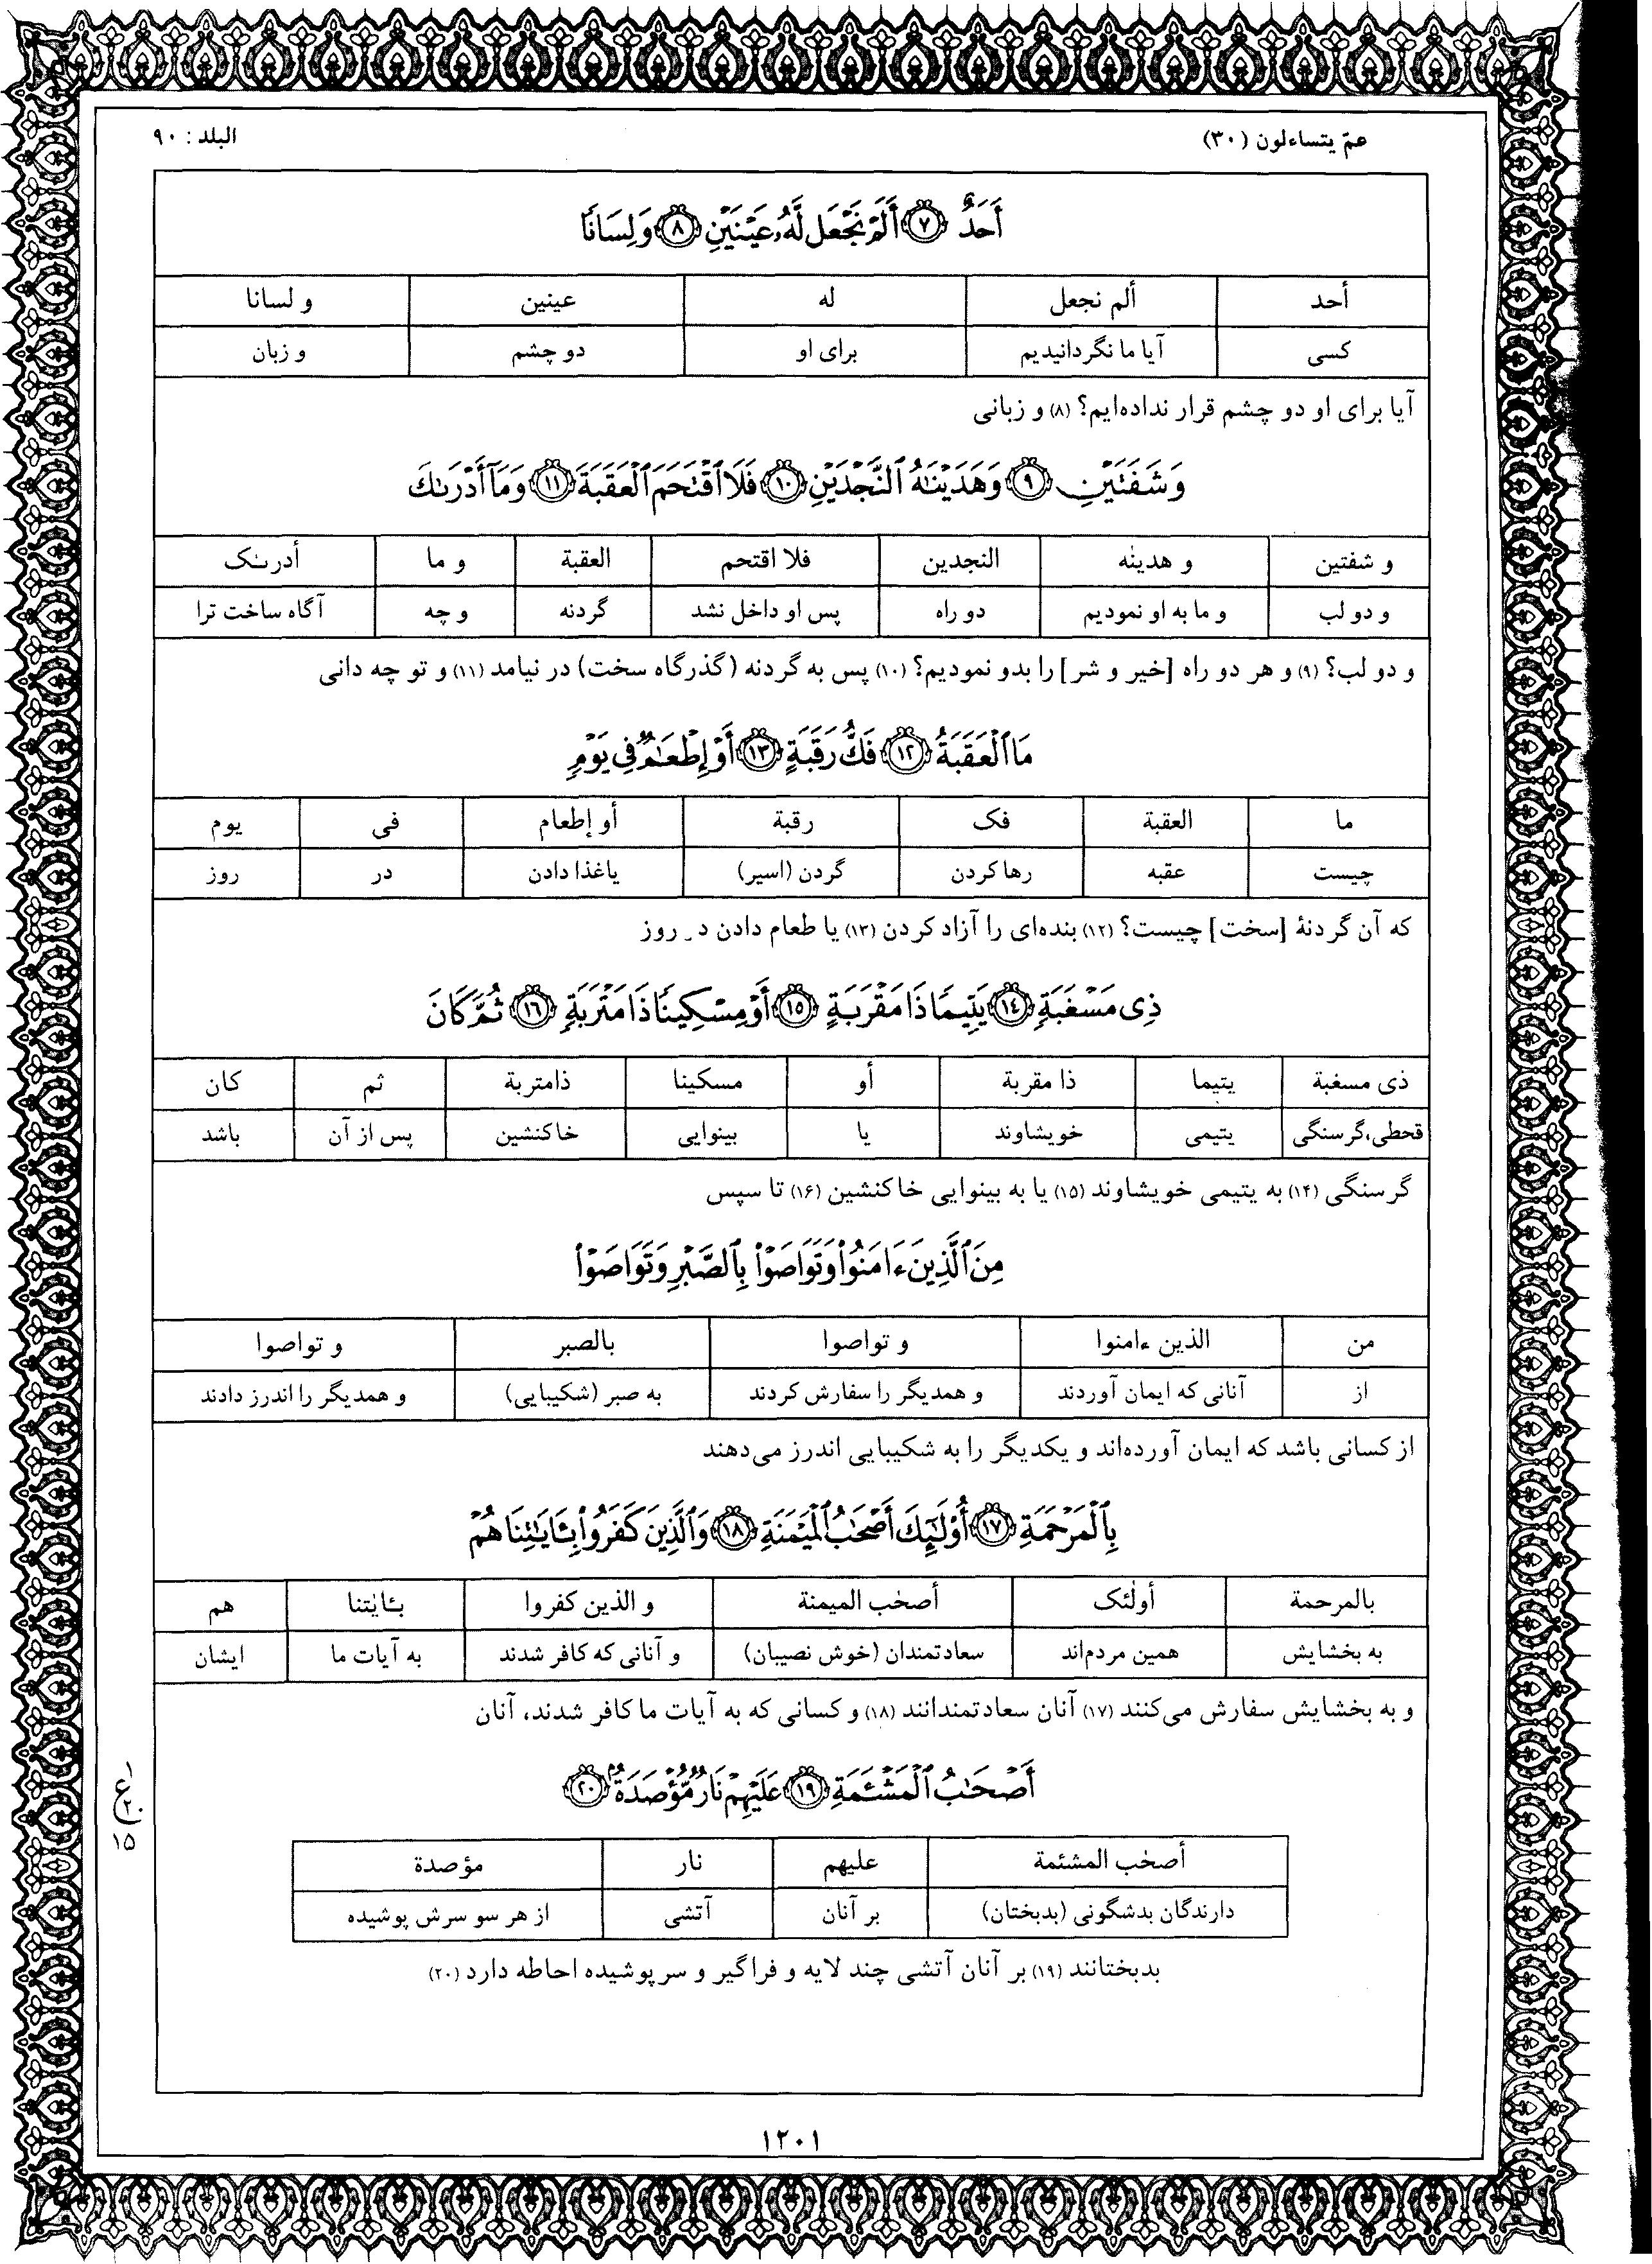 عمّ يتساءلون (۳۰)
البلد : ۹۰
أَحَدٌ ﴿٧﴾ أَلَمْ نَجْعَل لَّهُۥ عَيْنَيْنِ ﴿٨﴾ وَلِسَانًا
أحد | ألم نجعل | له | عينين | و لسانا
کسی | آیا ما نگردانیدیم | برای او | دو چشم | و زبان
آیا برای او دو چشم قرار نداده‌ایم؟ (۸) و زبانی
وَشَفَتَيْنِ ﴿٩﴾ وَهَدَيْنَٰهُ ٱلنَّجْدَيْنِ ﴿١٠﴾ فَلَا ٱقْتَحَمَ ٱلْعَقَبَةَ ﴿١١﴾ وَمَآ أَدْرَىٰكَ
و شفتين | و هدينٰه | النجدين | فلا اقتحم | العقبة | و ما | أدرىٰک
و دو لب | و ما به او نمودیم | دو راه | پس او داخل نشد | گردنه | و چه | آگاه ساخت ترا
و دو لب؟ (۹) و هر دو راه [خیر و شر] را بدو نمودیم؟ (۱۰) پس به گردنه (گذرگاه سخت) در نیامد (۱۱) و تو چه دانی
مَا ٱلْعَقَبَةُ ﴿١٢﴾ فَكُّ رَقَبَةٍ ﴿١٣﴾ أَوْ إِطْعَٰمٌ فِى يَوْمٍ
ما | العقبة | فک | رقبة | أو إطعام | فی | يوم
چیست | عقبه | رها کردن | گردن (اسیر) | یاغذا دادن | در | روز
که آن گردنهٔ [سخت] چیست؟ (۱۲) بنده‌ای را آزاد کردن (۱۳) یا طعام دادن در روز
ذِى مَسْغَبَةٍ ﴿١٤﴾ يَتِيمًا ذَا مَقْرَبَةٍ ﴿١٥﴾ أَوْ مِسْكِينًا ذَا مَتْرَبَةٍ ﴿١٦﴾ ثُمَّ كَانَ
ذی مسغبة | يتيما | ذا مقربة | أو | مسكينا | ذامتربة | ثم | كان
قحطی،گرسنگی | یتیمی | خویشاوند | یا | بینوایی | خاکنشین | پس از آن | باشد
گرسنگی (۱۴) به یتیمی خویشاوند (۱۵) یا به بینوایی خاکنشین (۱۶) تا سپس
مِنَ ٱلَّذِينَ ءَامَنُوا۟ وَتَوَاصَوْا۟ بِٱلصَّبْرِ وَتَوَاصَوْا۟
من | الذين ءامنوا | و تواصوا | بالصبر | و تواصوا
از | آنانی که ایمان آوردند | و همدیگر را سفارش کردند | به صبر (شکیبایی) | و همدیگر را اندرز دادند
از کسانی باشد که ایمان آورده‌اند و یکدیگر را به شکیبایی اندرز می‌دهند
بِٱلْمَرْحَمَةِ ﴿١٧﴾ أُو۟لَٰٓئِكَ أَصْحَٰبُ ٱلْمَيْمَنَةِ ﴿١٨﴾ وَٱلَّذِينَ كَفَرُوا۟ بِـَٔايَٰتِنَا هُمْ
بالمرحمة | أولٰئک | أصحٰب الميمنة | و الذين كفروا | بـٔايٰتنا | هم
به بخشایش | همین مردم‌اند | سعادتمندان (خوش نصیبان) | و آنانی که کافر شدند | به آیات ما | ایشان
و به بخشایش سفارش می‌کنند (۱۷) آنان سعادتمندانند (۱۸) و کسانی که به آیات ما کافر شدند، آنان
أَصْحَٰبُ ٱلْمَشْـَٔمَةِ ﴿١٩﴾ عَلَيْهِمْ نَارٌ مُّؤْصَدَةٌۢ ﴿٢٠﴾
۱
ع
۲۰
۱۵
أصحٰب المشئمة | عليهم | نار | مؤصدة
دارندگان بدشگونی (بدبختان) | بر آنان | آتشی | از هر سو سرش پوشیده
بدبختانند (۱۹) بر آنان آتشی چند لایه و فراگیر و سرپوشیده احاطه دارد (۲۰)
۱۲۰۱